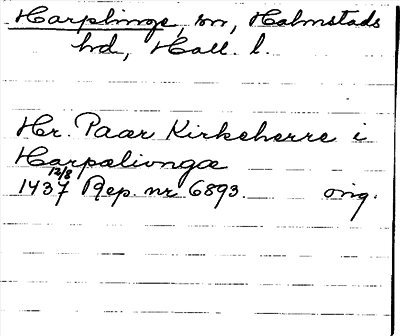 Harplinge, sn, Halmstads
hd, Hall. l.
Hr. Paar Kirkeherre i
Harpaliunga
1437 12/8 Rep. nr 6893. orig.